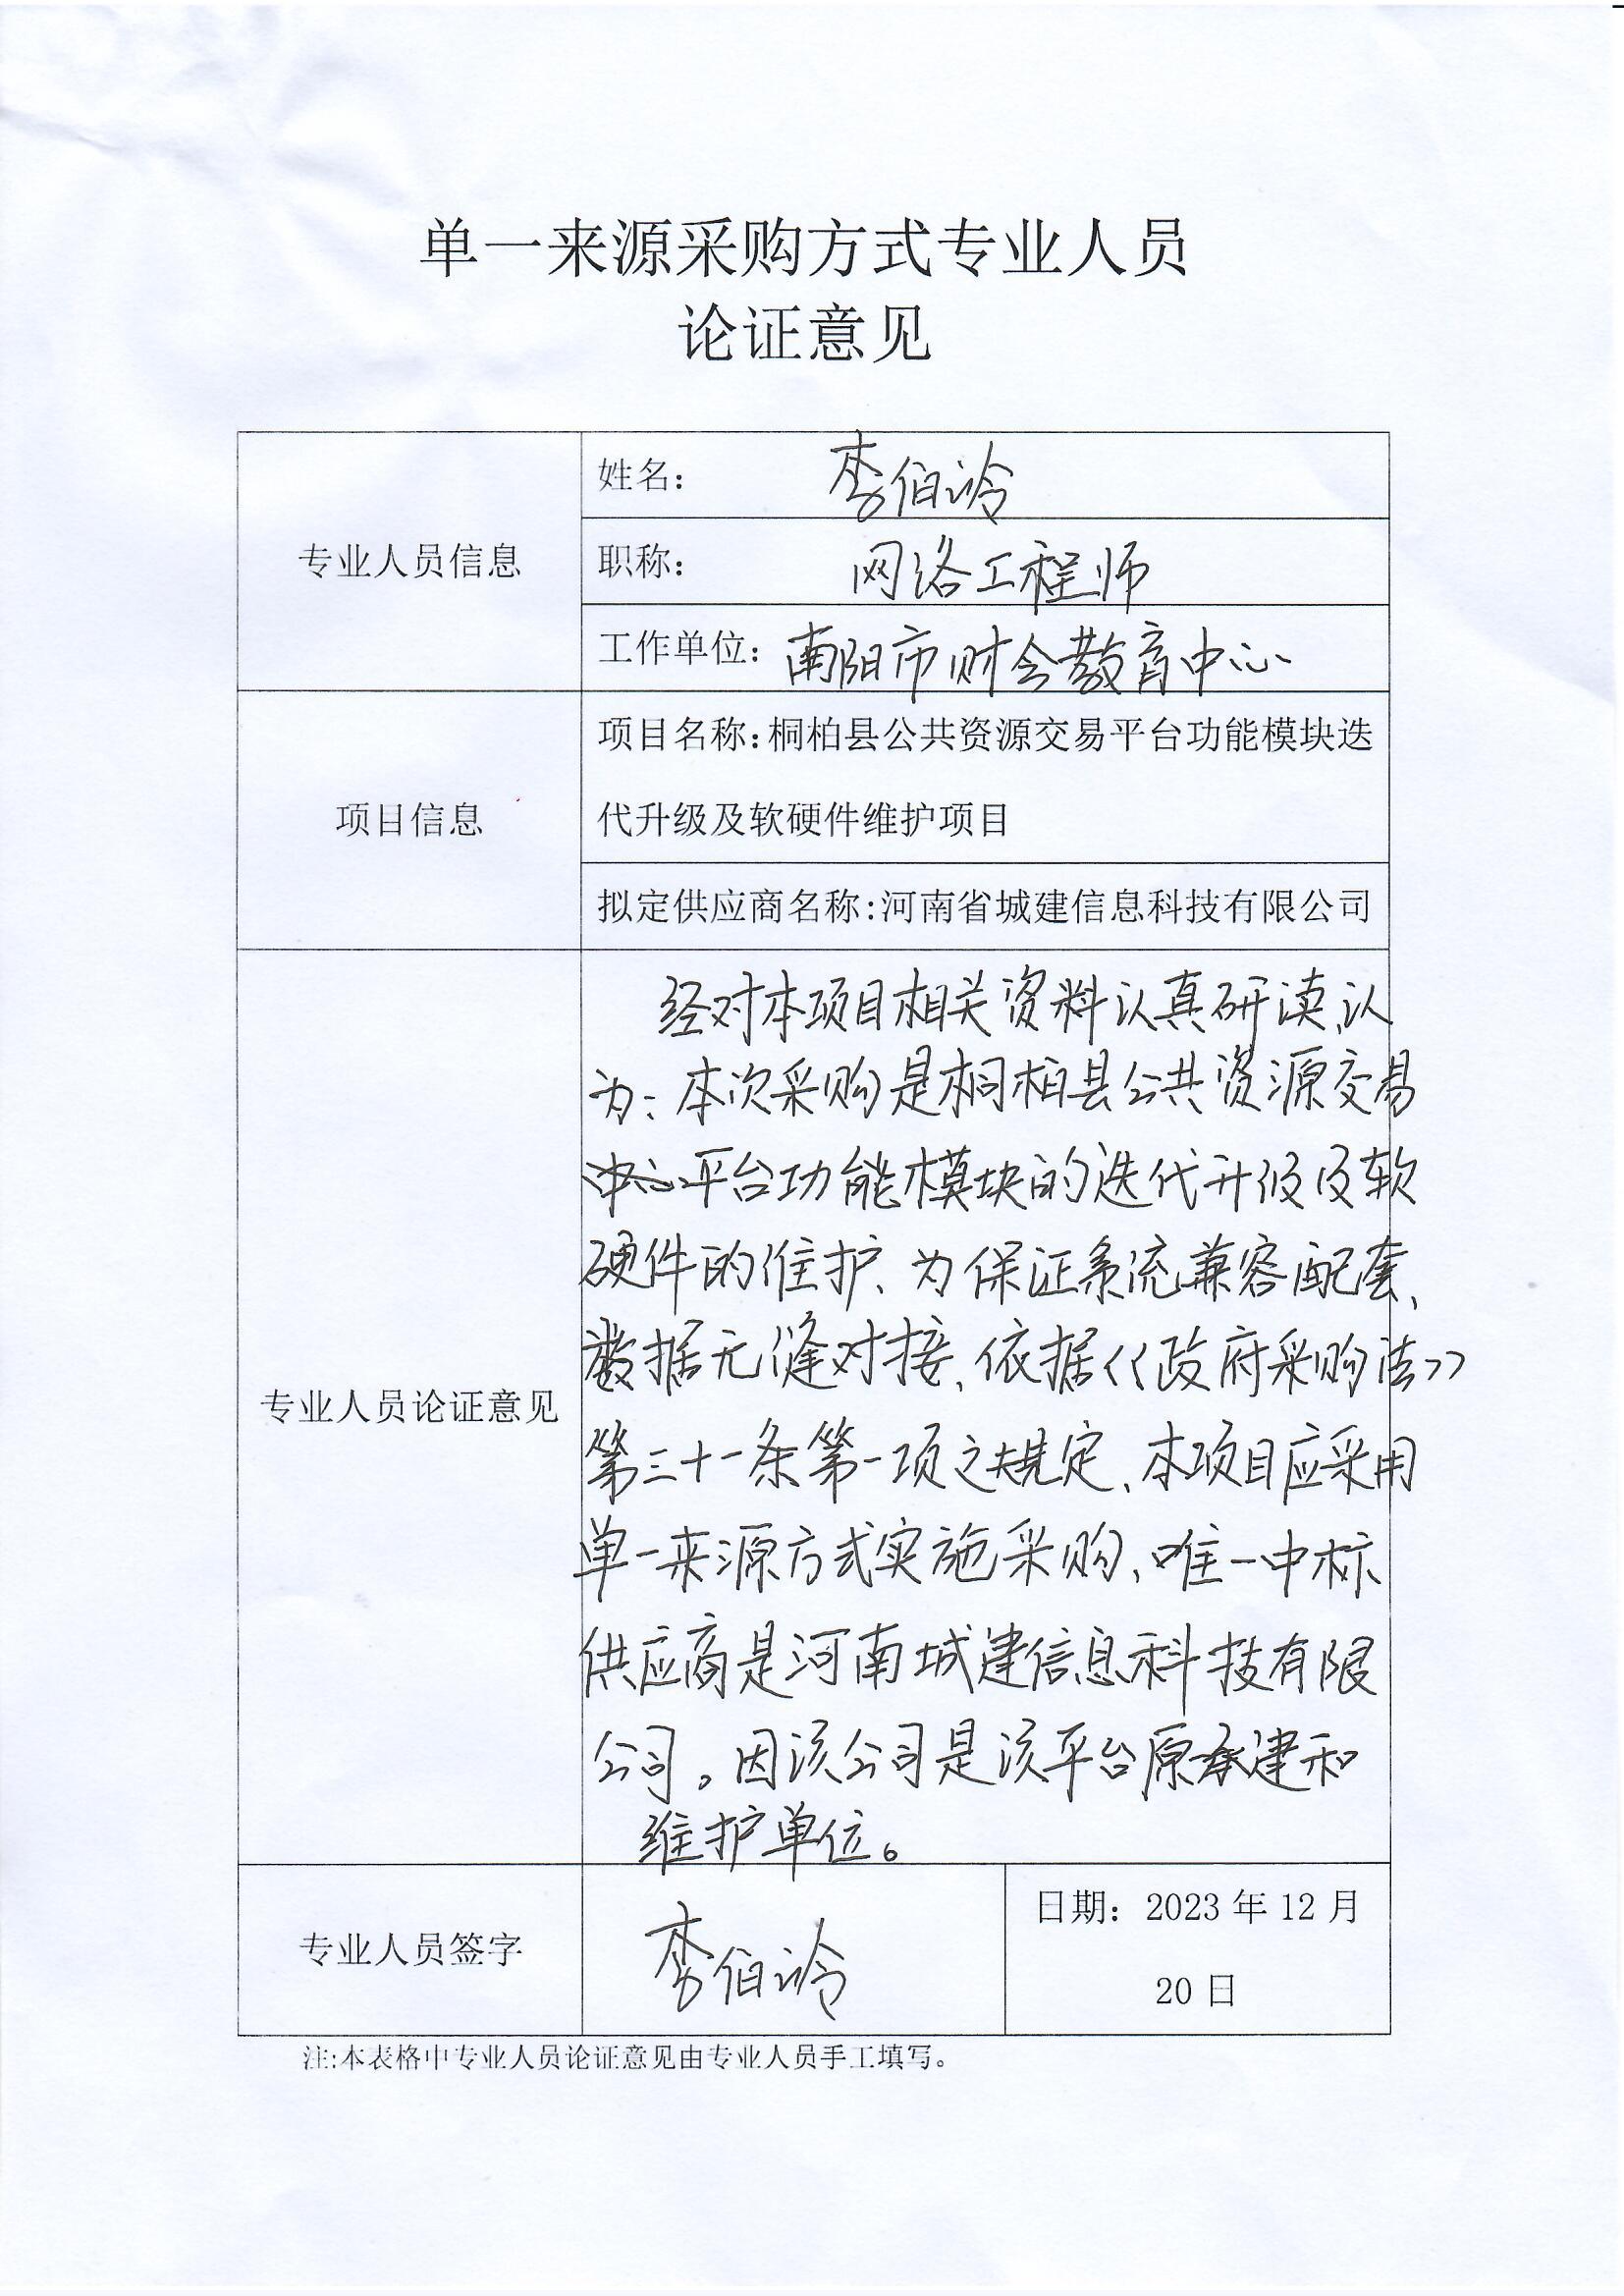 单一来源采购方式专业人员
论证意见
专业人员信息
姓名： 李伯
职称： 网络工程师
工作单位：南阳市财会教育中心
项目信息
项目名称：桐柏县公共资源交易平台功能模块迭
代升级及软硬件维护项目
拟定供应商名称：河南省城建信息科技有限公司
专业人员论证意见
经对本项目相关资料认真研读，认
为：本次采购是桐柏县公共资源交易
平台功能模块的迭代升级及软
硬件的维护、为保证系统兼容配套、
数据无缝对接、依据《政府采购法》
第三十一条第一项之规定、本项目应采用
单一来源方式实施采购、唯一中标
供应商是河南城建信息科技有限
公司。因该公司是该平台原承建和
维护单位。
专业人员签字
李伯
日期：2023 年 12 月
20 日
注:本表格中专业人员论证意见由专业人员手工填写。